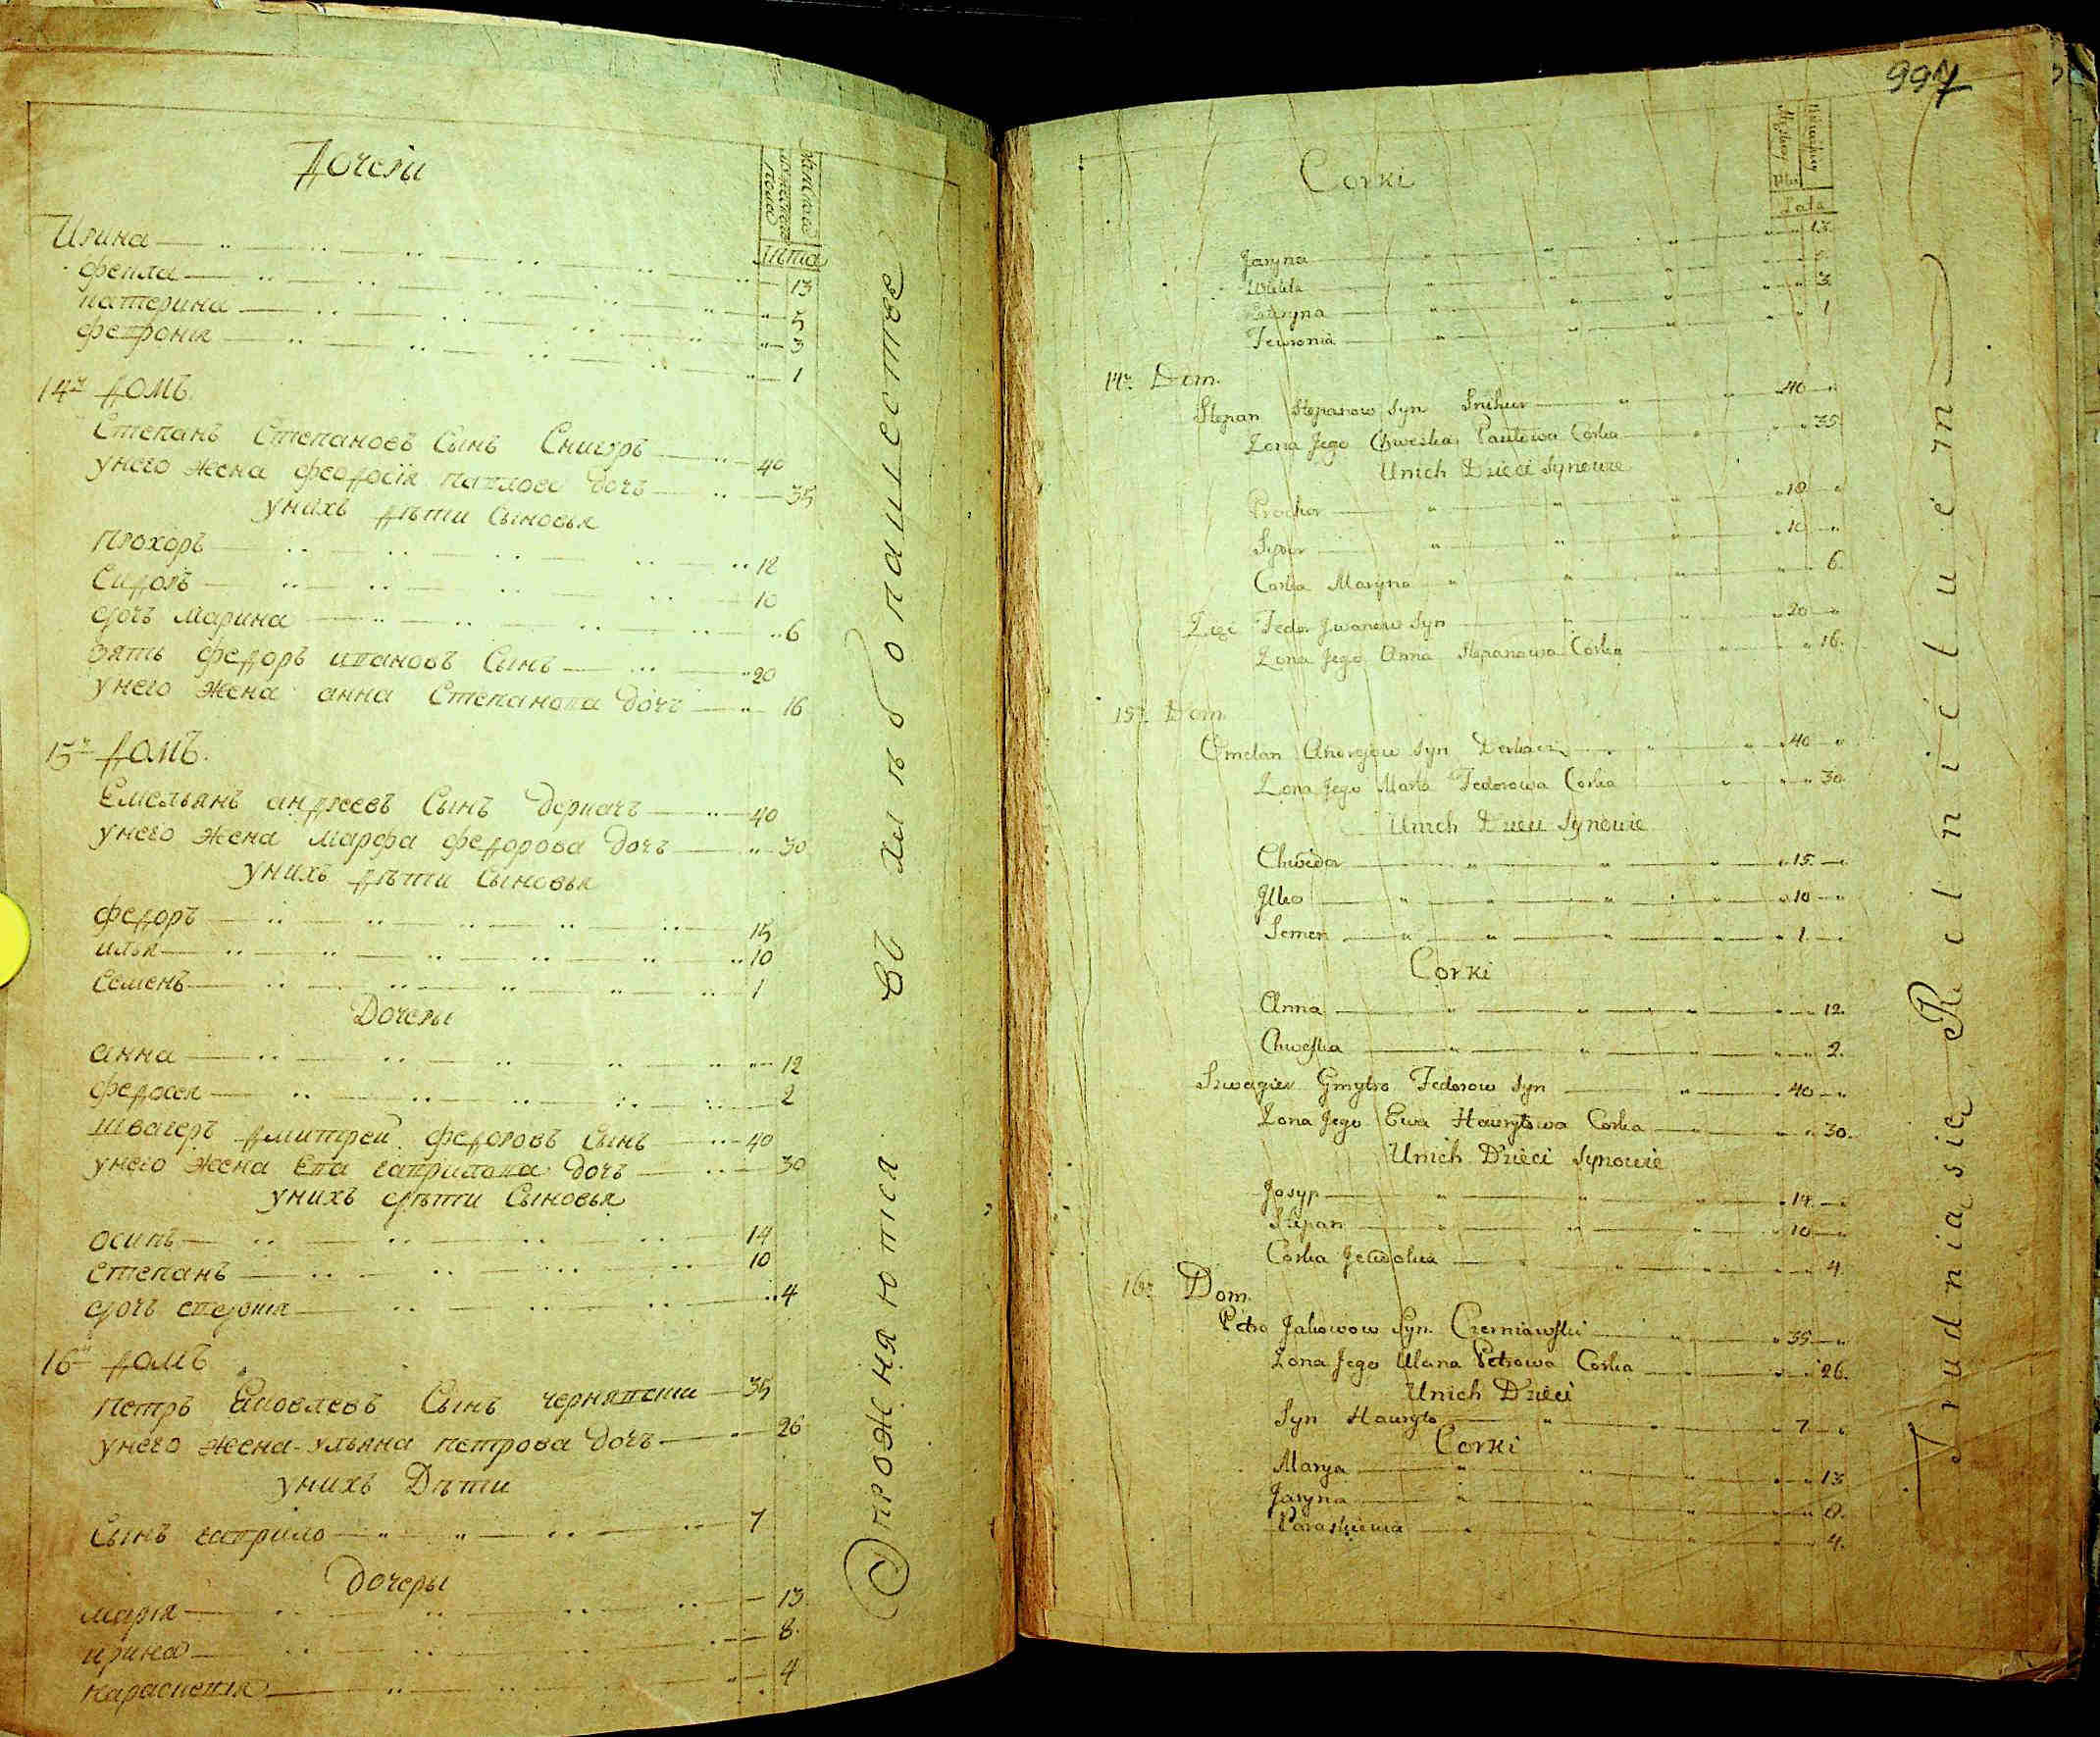 Дочери
лѣта
Ирина 13
фекла 5
катерина 3
феѵронія 1
14й Домъ
Степанъ Степановъ Сынъ Снигуръ 40
унего жена феодосія павлова дочъ 35
унихъ дѣти Сыновья
прохоръ 12
Сидоръ 10
дочъ марина 6
зять федоръ ивановъ Сынъ 20
унего жена анна Степанова дочъ 16
15й Домъ.
Емельянъ андреевъ Сынъ деркачъ 40
унего жена марфа федорова дочъ 30
унихъ дѣти Сыновья
федоръ 15
илья 10
Семенъ 1
Дочеры
анна 12
федосея 2
швагеръ дмитрей федоровъ Сынъ 40
унего жена Ева гаврилова дочъ 30
унихъ дѣти Сыновья
осипъ 14
степанъ 10
дочъ 4
16й домъ
петръ Яковлевъ Сынъ чернявски 35
унего жена ульяна петрова дочъ 26
унихъ Дѣти
Сынъ гаврило 7
дочеры
марія 13
ирина 8
параскевія 4
упрожняются въ хлѣбопашестве
997
Corki
Lata
Jaryna 13
Wekla
Kataryna 3
Tewronia 1
14. Dom.
Stepan Stepanow Syn Snihur 40
Zona Jego Chweska Pawlowa Corka 35
Unich Dzieci Synowie
Prochor
Sydor 10
Corka Maryna 6.
Zięć Fedor Jwanow Syn 20
Zona Jego Anna Stepanowa Corka 16.
15. Dom
Omelan Andrejow Syn Derkacz 40
Zona Jego Marta Fedorowa Corka 30
Unich Dzieci Synowie
Chwedor 15.
Jlko 10
Semen 1.
Corki
Anna 12.
Chweska 2.
Szwagier Gmytro Fedorow Syn 40
Zona Jego Ewa Hawryłowa Corka 30.
Unich Dzieci Synowie
Josyp 14
Stepan 10
Corka Jewdokia 4.
16. Dom.
Petro Jakowow Syn. Czerniawski 35
Zona Jego Ulana Petrowa Corka 26.
Unich Dzieci
Syn Hawryło 7
Corki
Marya 13
Jaryna 8.
Paraskiewia 4.
Trudnia się Rolnictwem